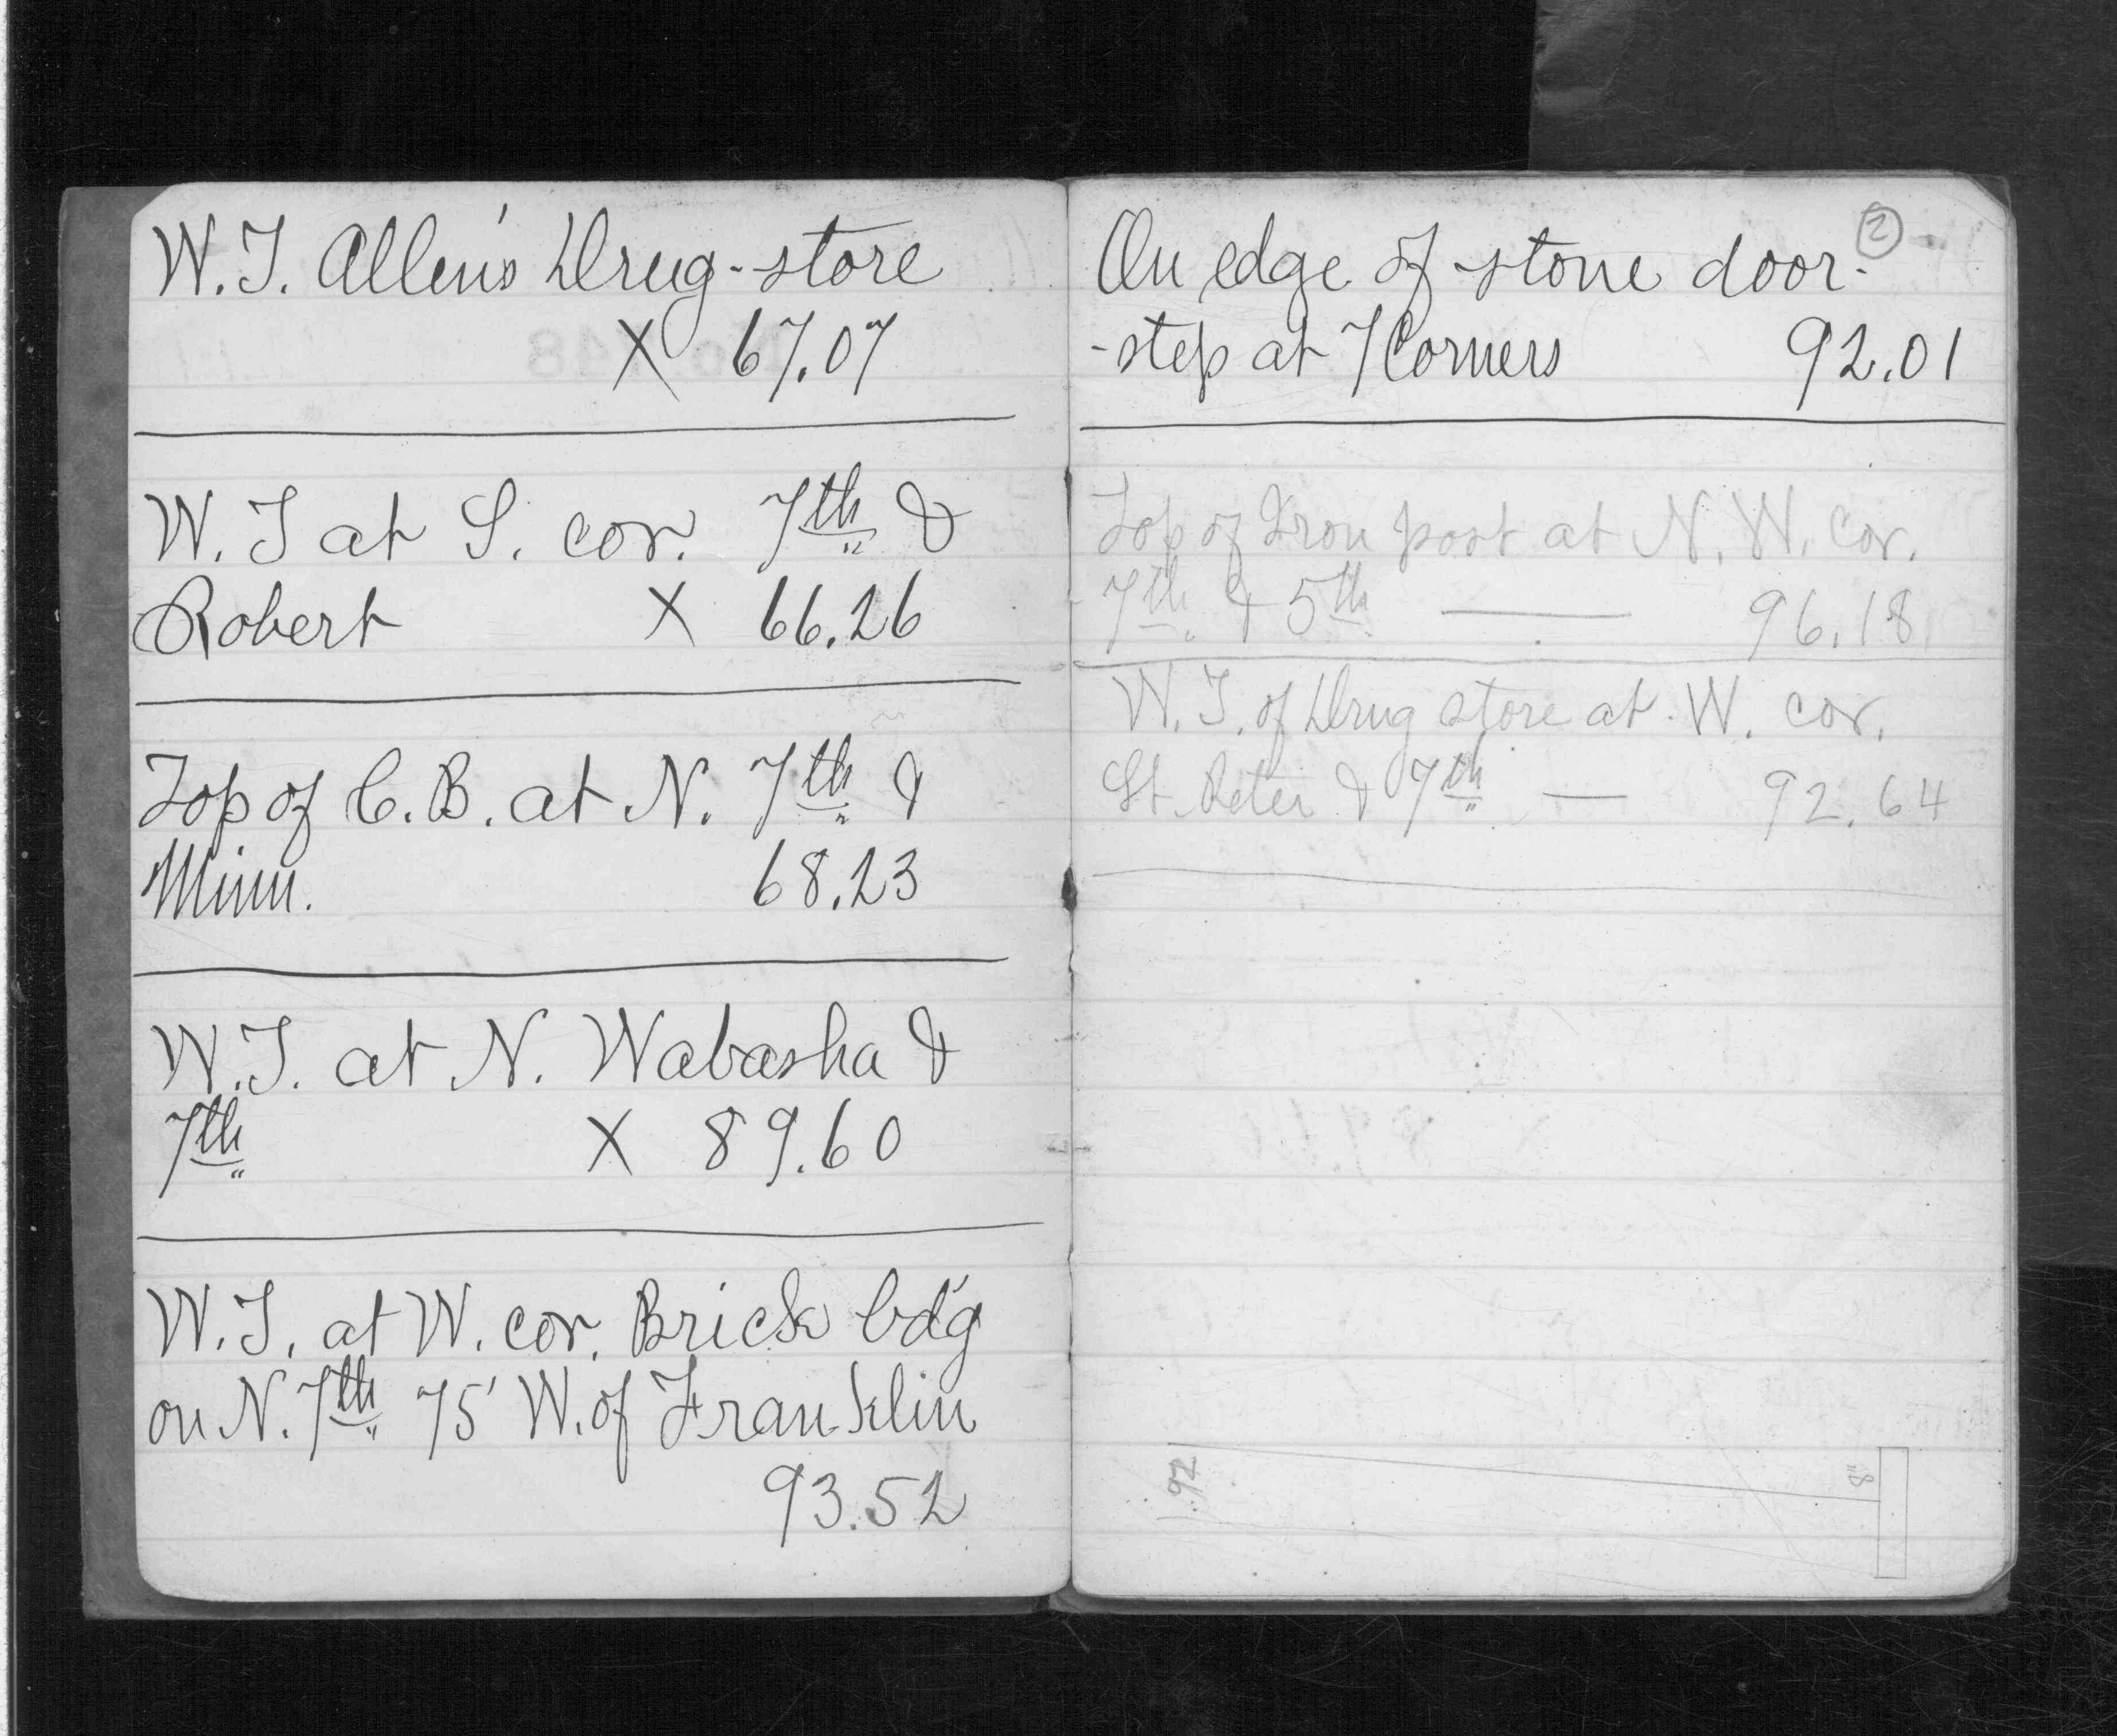 W.T. Allen's Drug-store
X 67.07
W.T at S. cor. 7th &
Robert X 66.26
Top of C.B. at N. 7th &
Minn. 68.23
W.T. at N. Wabasha &
7th X 89.60
W.T. at W. cor. Brick bd'g
on N. 7th 75' W. of Franklin
93.52
2
On edge of stone door-
-step at 7 Corners 92.01
Top of Iron post at N. W. cor.
7th & 5th — 96.18
W.T. of Drug store at W. cor.
St. Peter & 7th — 92.64
92
8"